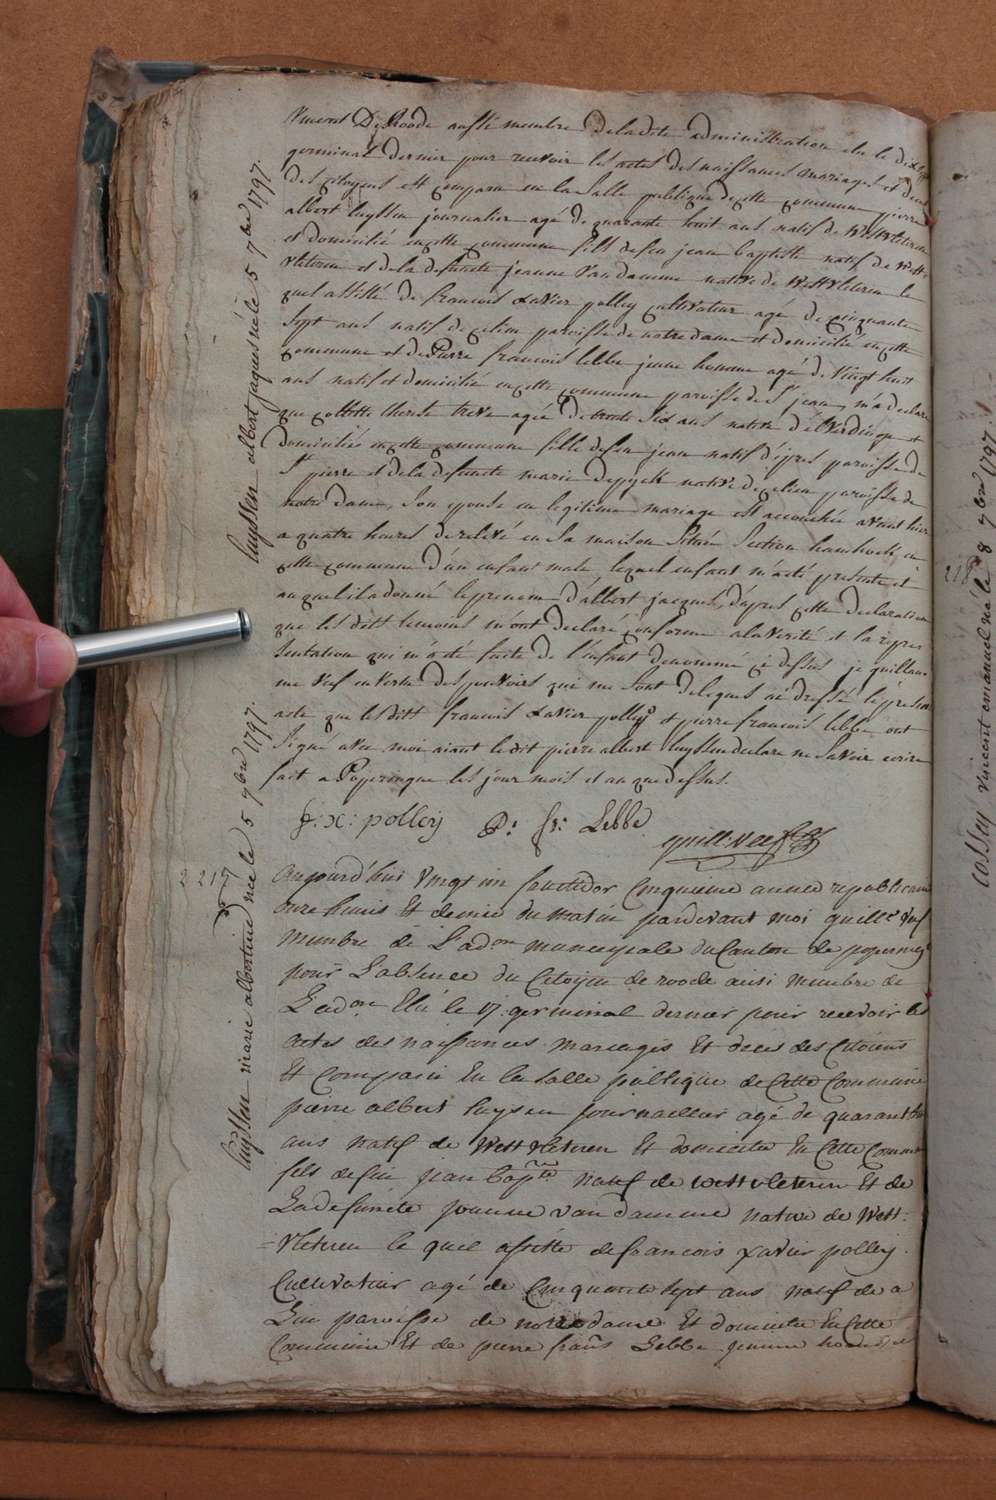 vincent DeRoode aussi membre de ladite administration elu le dix sept
germinal dernier pour recevoir les actes des naissances mariages et deces
des citoyens est comparu en la Salle publique de cette commune pierre
albert huyssen journalier agé de quarante huit ans natif de Westvleteren
et domicilié en cette commune fils defeu jean baptiste natif de West
vleteren et de la defuncte jeanne Vandamme native de Westvleteren le
quel assisté de francois Xavier polley cultivateur agé de cinquante
Sept ans natif de paroisse de notre dame et domicilié en cette
commune et de Pierre francois lebbe jeune homme agé de vingt huit
ans natif et domicilié en cette commune paroisse de St jean, m'a declaré
que collette therese treve agée de trente Six ans native d'elverdinge et
domiciliée en cette commune fille defeu jean natif d'ipres paroisse de
St pierre et de la defuncte marie native de paroisse de
notre dame, Son epouse en legitime mariage est accouchée avant hier
a quatre heures de relevé en Sa maison Située Section hamhoek en
cette commune d'un enfant male, lequel enfant m'a été presenté et
auquel il a donné le prenom d'albert jacques, d'apres cette declaration
que les dits temoins m'ont declaré conforme a la verité et la repre
sentation qui m'a été faite de l'enfant denommé ci dessus je guillau
me Veef en vertu des pouvoirs qui me Sont delegués ai dressé le present
acte que les dits francois Xavier polley et pierre francois lebbe ont
Signé avec moi aiant ledit pierre albert huyssen declaré ne Savoir ecrire
fait a Poperingue les jour mois et an que dessus.
f: x: polley P: fr: Lebbe
guill: Veef
2217
Aujourd'hui vingt un fructidor Cinquieme année republicain
onze heures et demie du matin pardevant moi guille Veef
membre de L'adon municipale du Canton de poperingue
pour L'absence du Citoyen de roode aussi membre de
L'adon Elu le 17 germinal dernier pour recevoir les
actes des naissances mariages Et deces des Citoiens
Et Comparu En la Salle publique de Cette Commune
pierre albert huysen journailler agé de quarant huit
ans natif de Westvleteren Et domicilie En Cette Commune
fils de feu jean bapte natif de westvleteren Et de
La defuncte jeanne vandamme native de West=
=vleteren le quel assisté de francois xavier polley
Cultivateur agé de Cinquante sept ans natif de
paroisse de notre dame Et domicilie En Cette
Commune Et de pierre frans Lebbe jeune homme
huyssen albert jaques né le 5 7bre 1797.
huyssen marie albertine née le 5 7bre 1797.
218
Cossey vincent emanuel né le 8 7bre 1797.